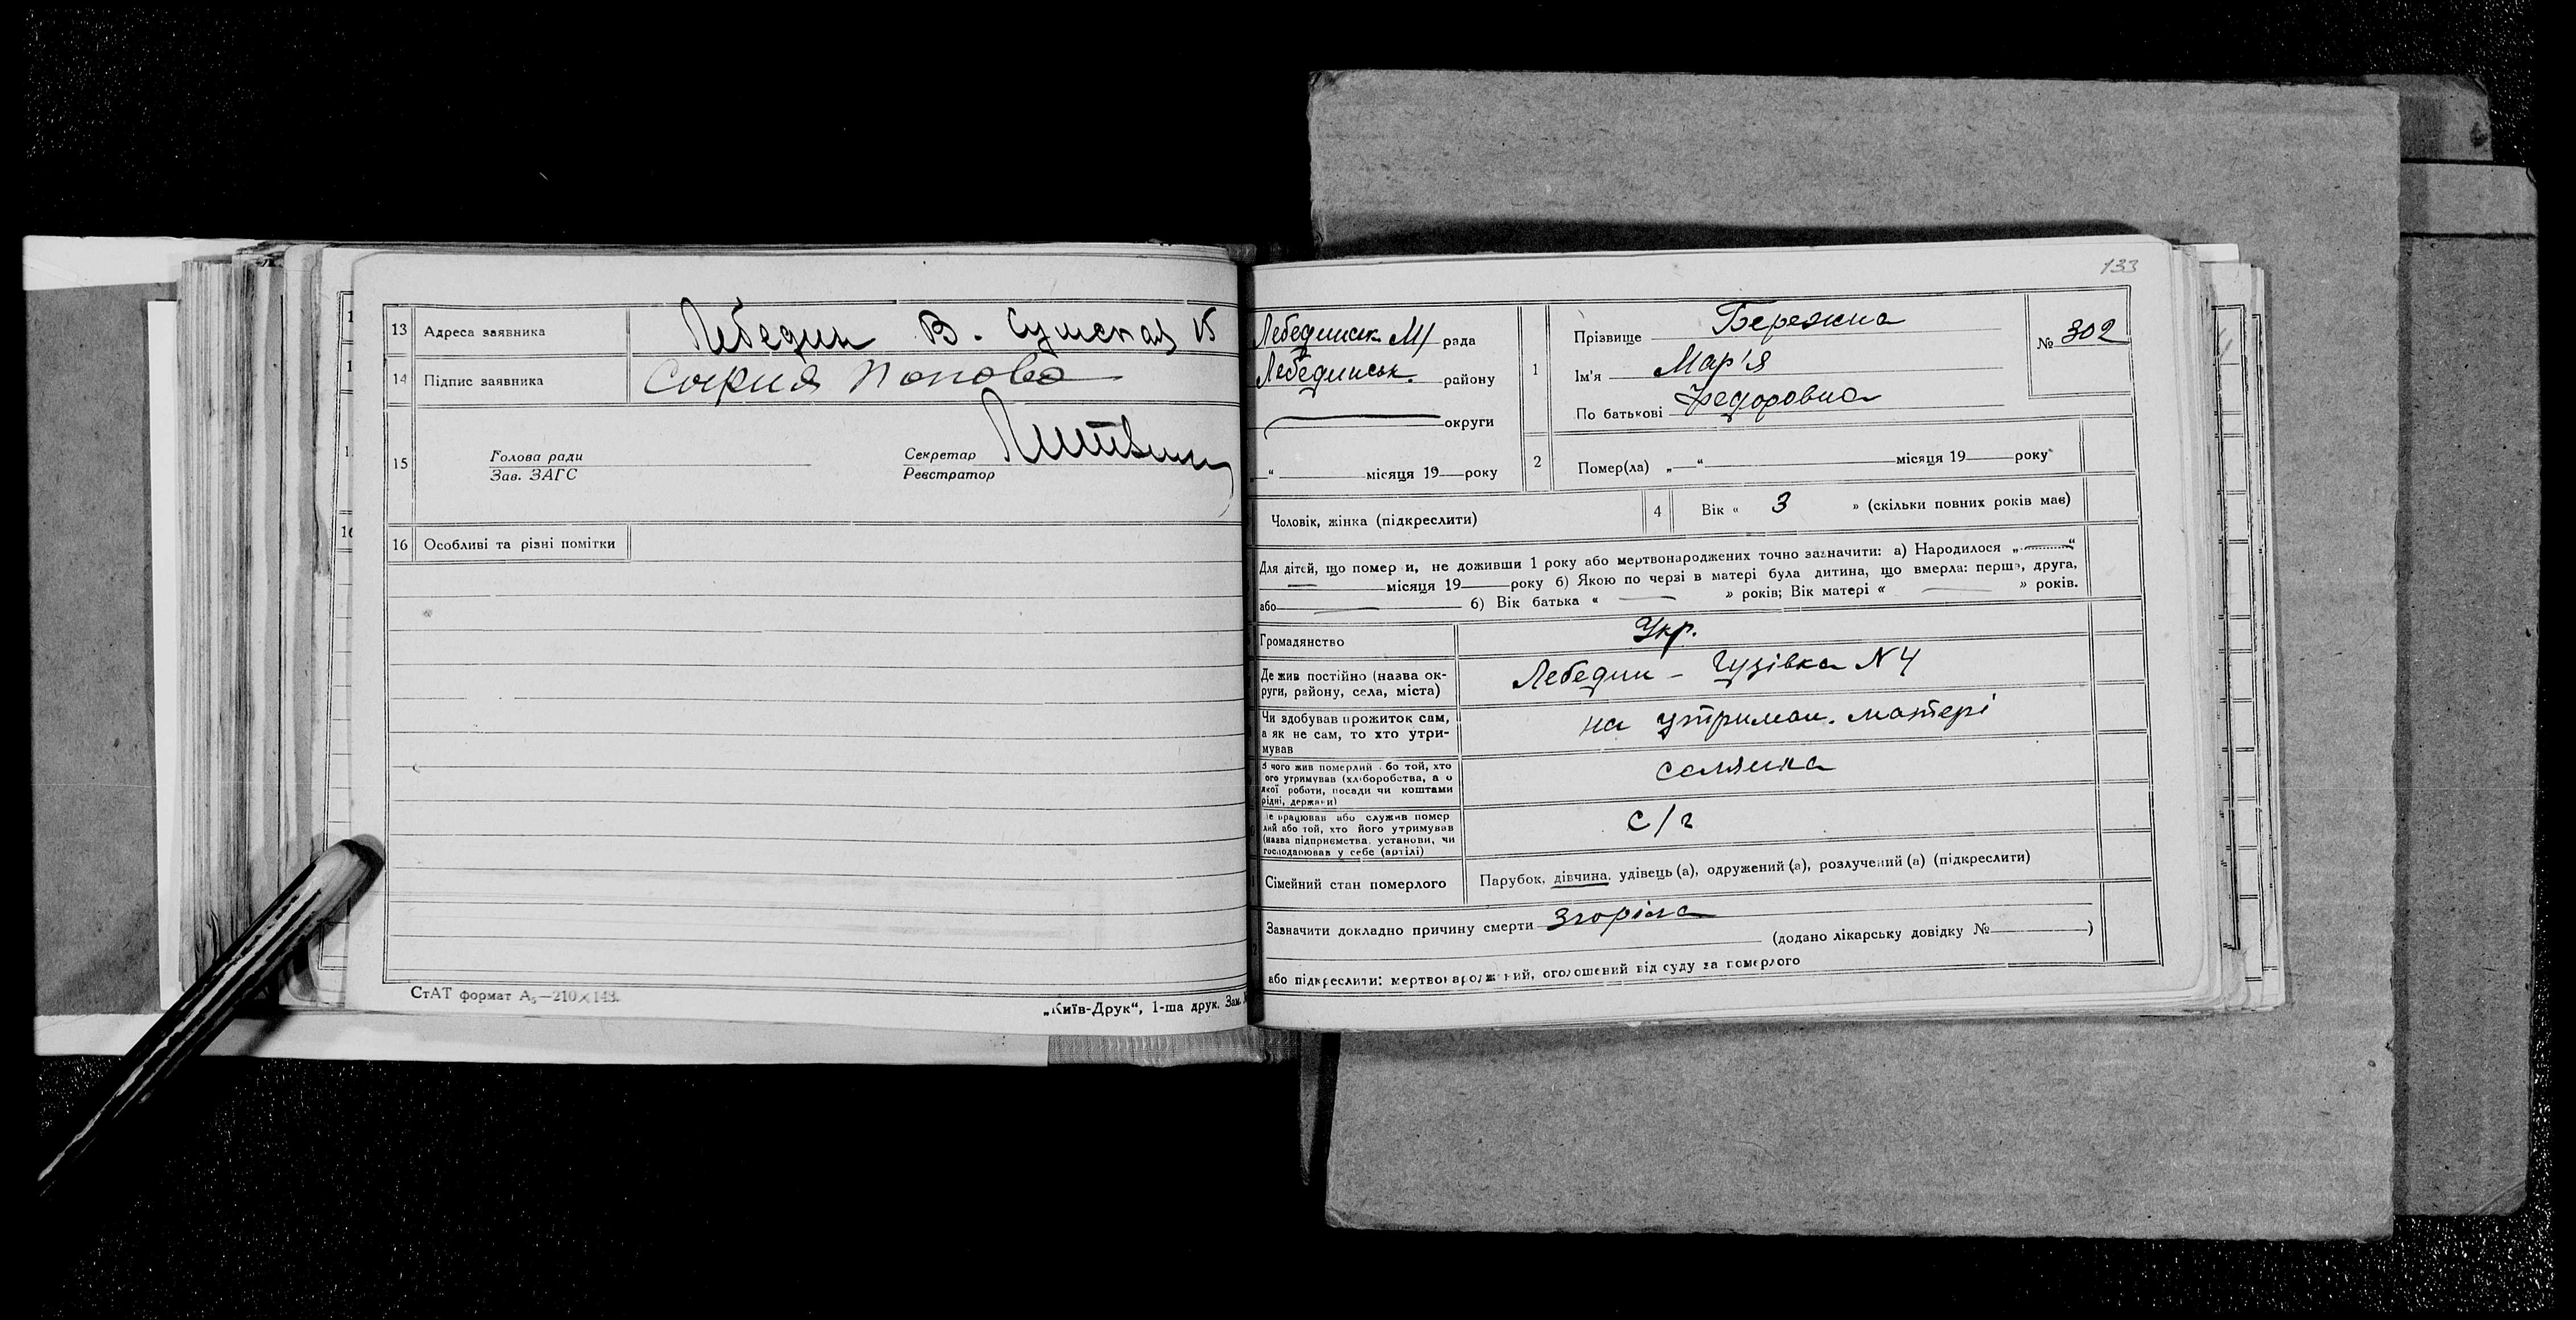 13 Адреса заявника Лебедин В. Сумская 15
14 Підпис заявника София Попова
15 Голова ради
Зав. ЗАГС
Секретар
Реєстратор
16 Особливі та різні помітки
СтАТ формат А₅—210×148.
„Київ-Друк“, 1-ша друк. Зам.
133
Лебединськ М/ рада
Лебединськ. району
округи
“ місяця 19 року
1 Прізвище Бережна
Ім'я Мар'я
По батькові Федоровна
№ 302
2 Помер(ла) „ “ місяця 19 року
Чоловік, жінка (підкреслити)
4 Вік « 3 » (скільки повних років має)
Для дітей, що померли, не доживши 1 року або мертвонароджених точно зазначити: а) Народилося „ “
місяця 19 року б) Якою по черзі в матері була дитина, що вмерла: перша, друга,
або б) Вік батька « » років; Вік матері « » років.
Громадянство Укр.
Де жив постійно (назва ок-
руги, району, села, міста) Лебедин – Гузівка N 4
Чи здобував прожиток сам,
а як не сам, то хто утри-
мував на утриман. матері
З чого жив померлий або той, хто
його утримував (хліборобства, а о
якої роботи, посади чи коштами
рідні, держави) селянка
Де працював або служив помер
лий або той, хто його утримував
(назва підприємства, установи, чи
господарював у себе (артілі) с/г
Сімейний стан померлого Парубок, дівчина, удівець (а), одружений (а), розлучений (а) (підкреслити)
Зазначити докладно причину смерти згоріла
(додано лікарську довідку № )
або підкреслити: мертвонароджений, оголошений від суду за померлого